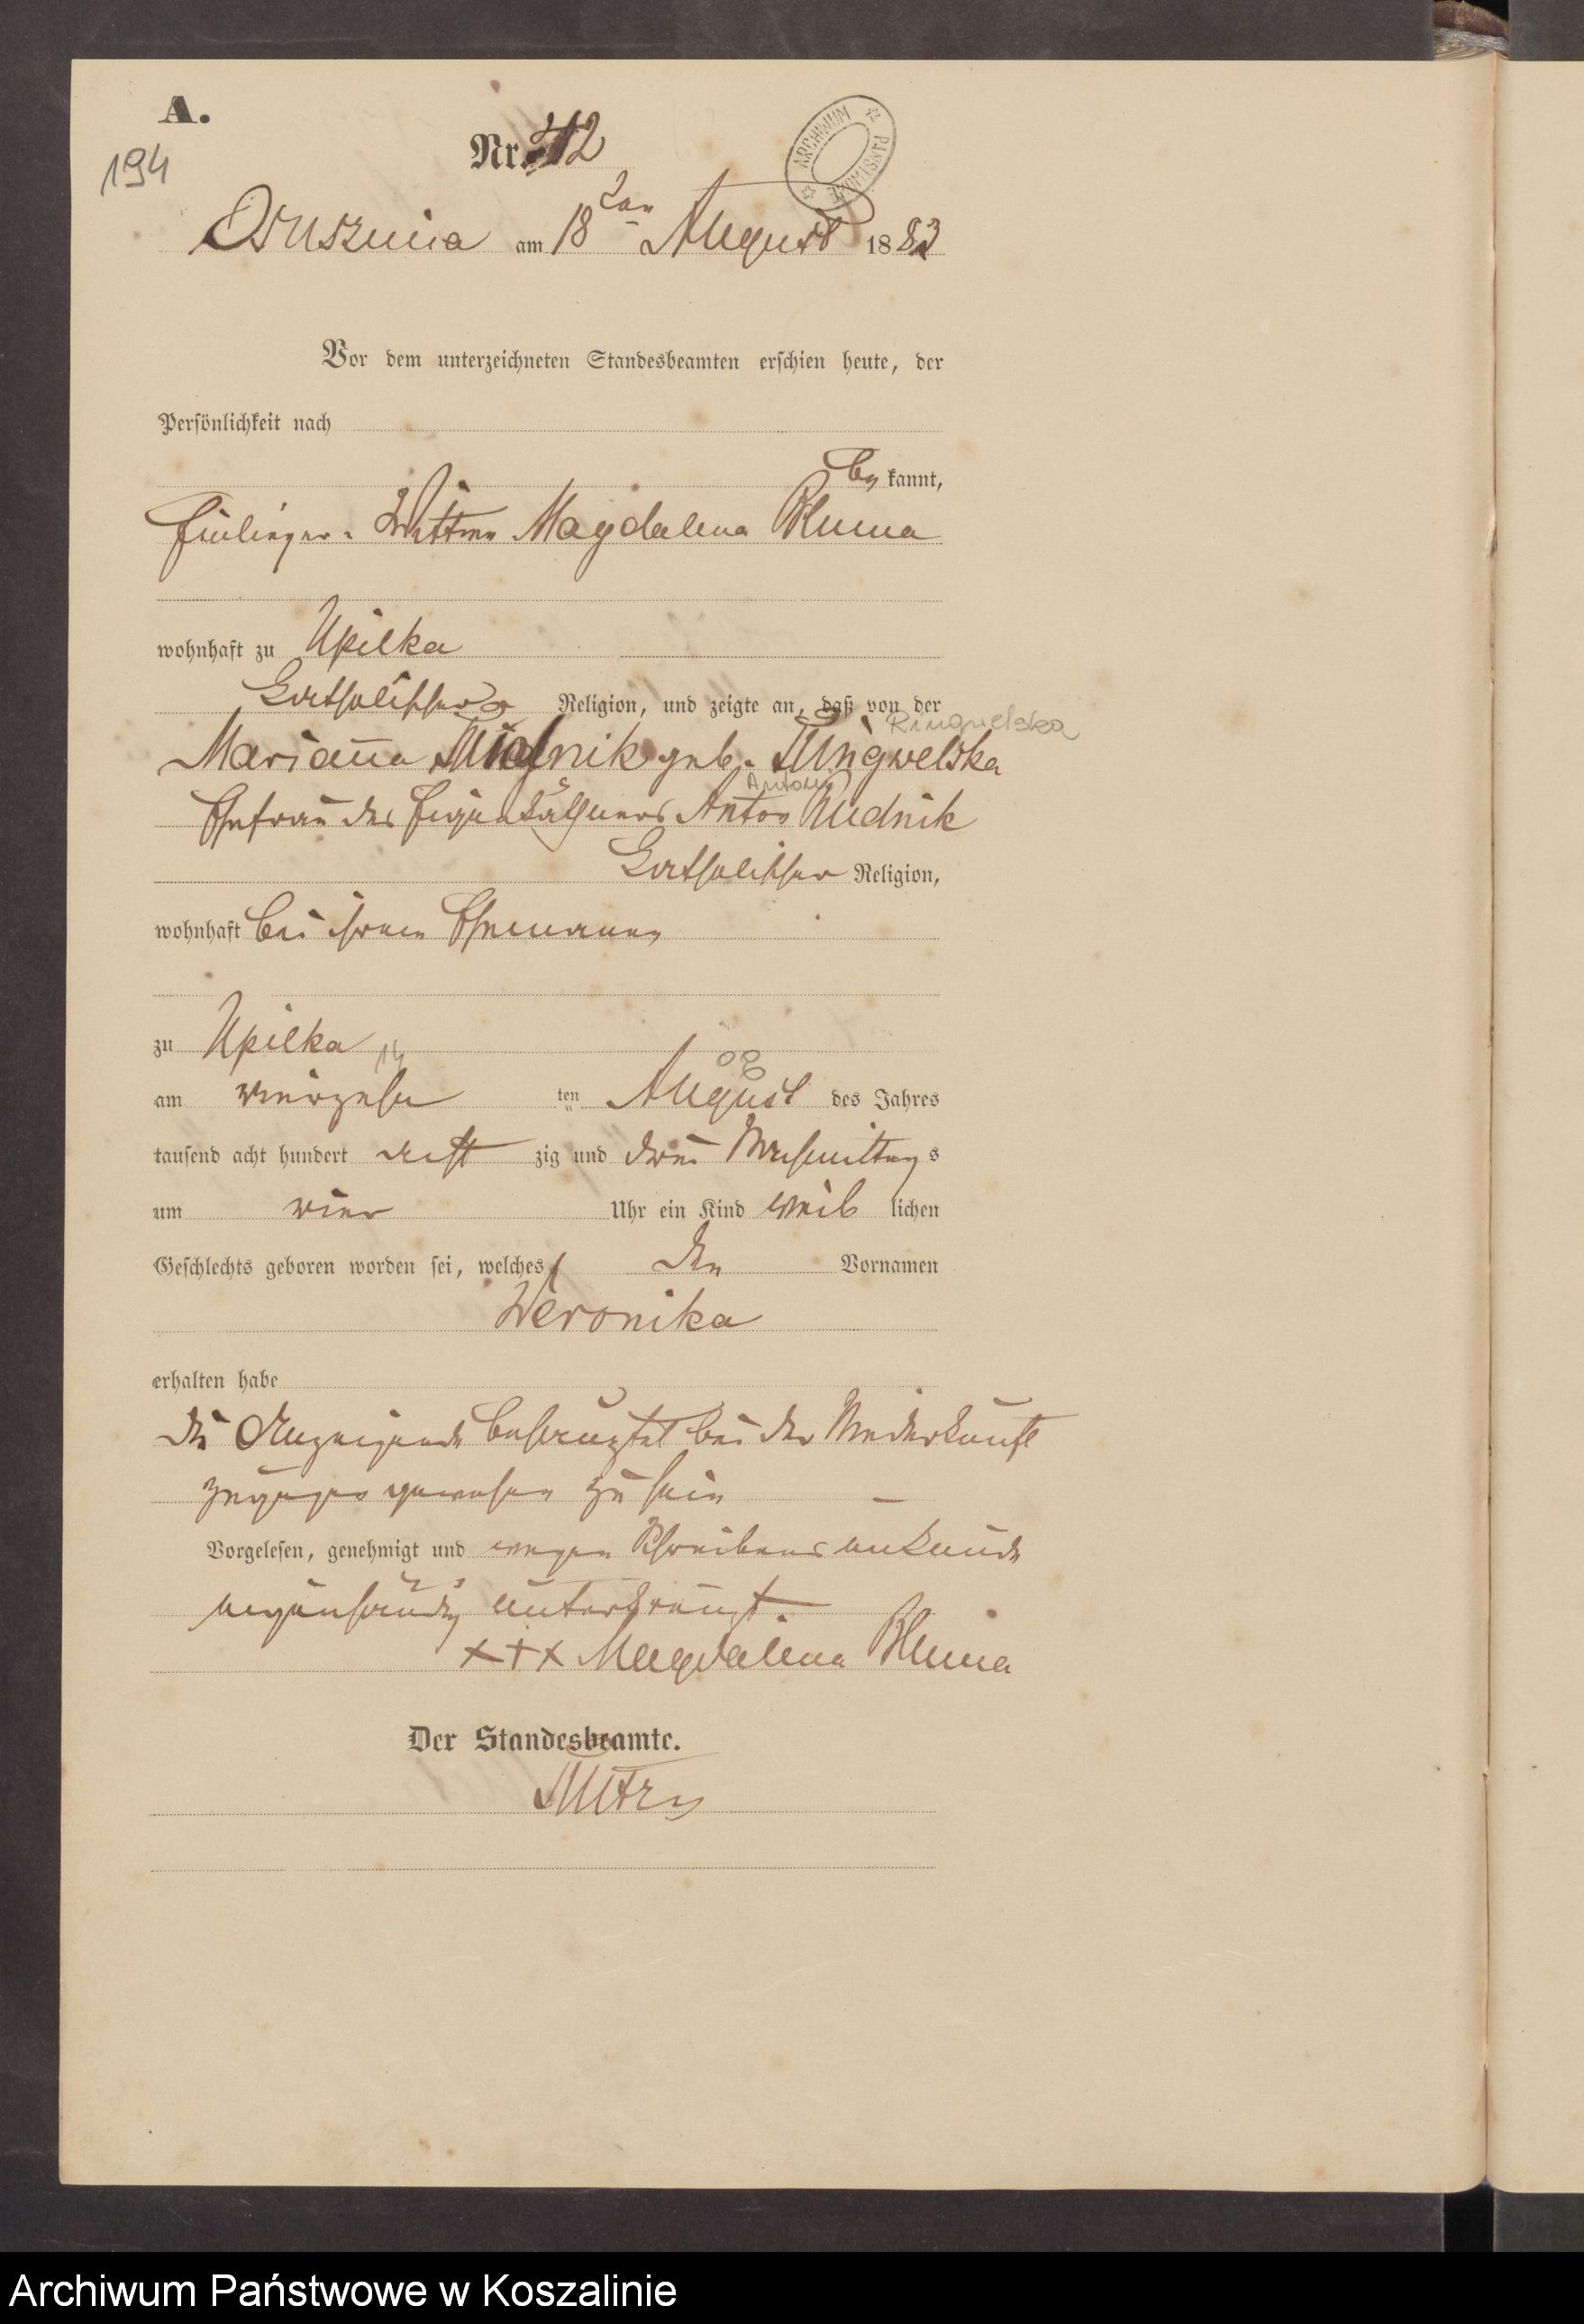 A.
194
Nr. 42
ARCHIWUM PAŃSTWOWE
Osuszniza am 18 ten August 1883
Vor dem unterzeichneten Standesbeamten erschien heute, der
Persönlichkeit nach
be kannt,
Einlieger-Wittwe Magdalena Bluma
wohnhaft zu Upilka
katholischer Religion, und zeigte an, daß von der
Ringwelska
Marianna Rudnik geb. Ringwelska
Antoni
Ehefrau des Eigenkäthners Anton Rudnik
katholischer Religion,
wohnhaft bei ihrem Ehemanne
zu Upilka
14
am vierzehn ten August des Jahres
tausend acht hundert acht zig und drei Nachmittag s
um vier Uhr ein Kind weib lichen
Geschlechts geboren worden sei, welches den Vornamen
Weronika
erhalten habe
die Anzeigende behauptet bei der Niederkunft
zugegen gewesen zu sein
Vorgelesen, genehmigt und wegen Schreibens unkunde
eigenhändig unterkreuzt.
+++ Magdalena Bluma
Der Standesbeamte.
Archiwum Państwowe w Koszalinie